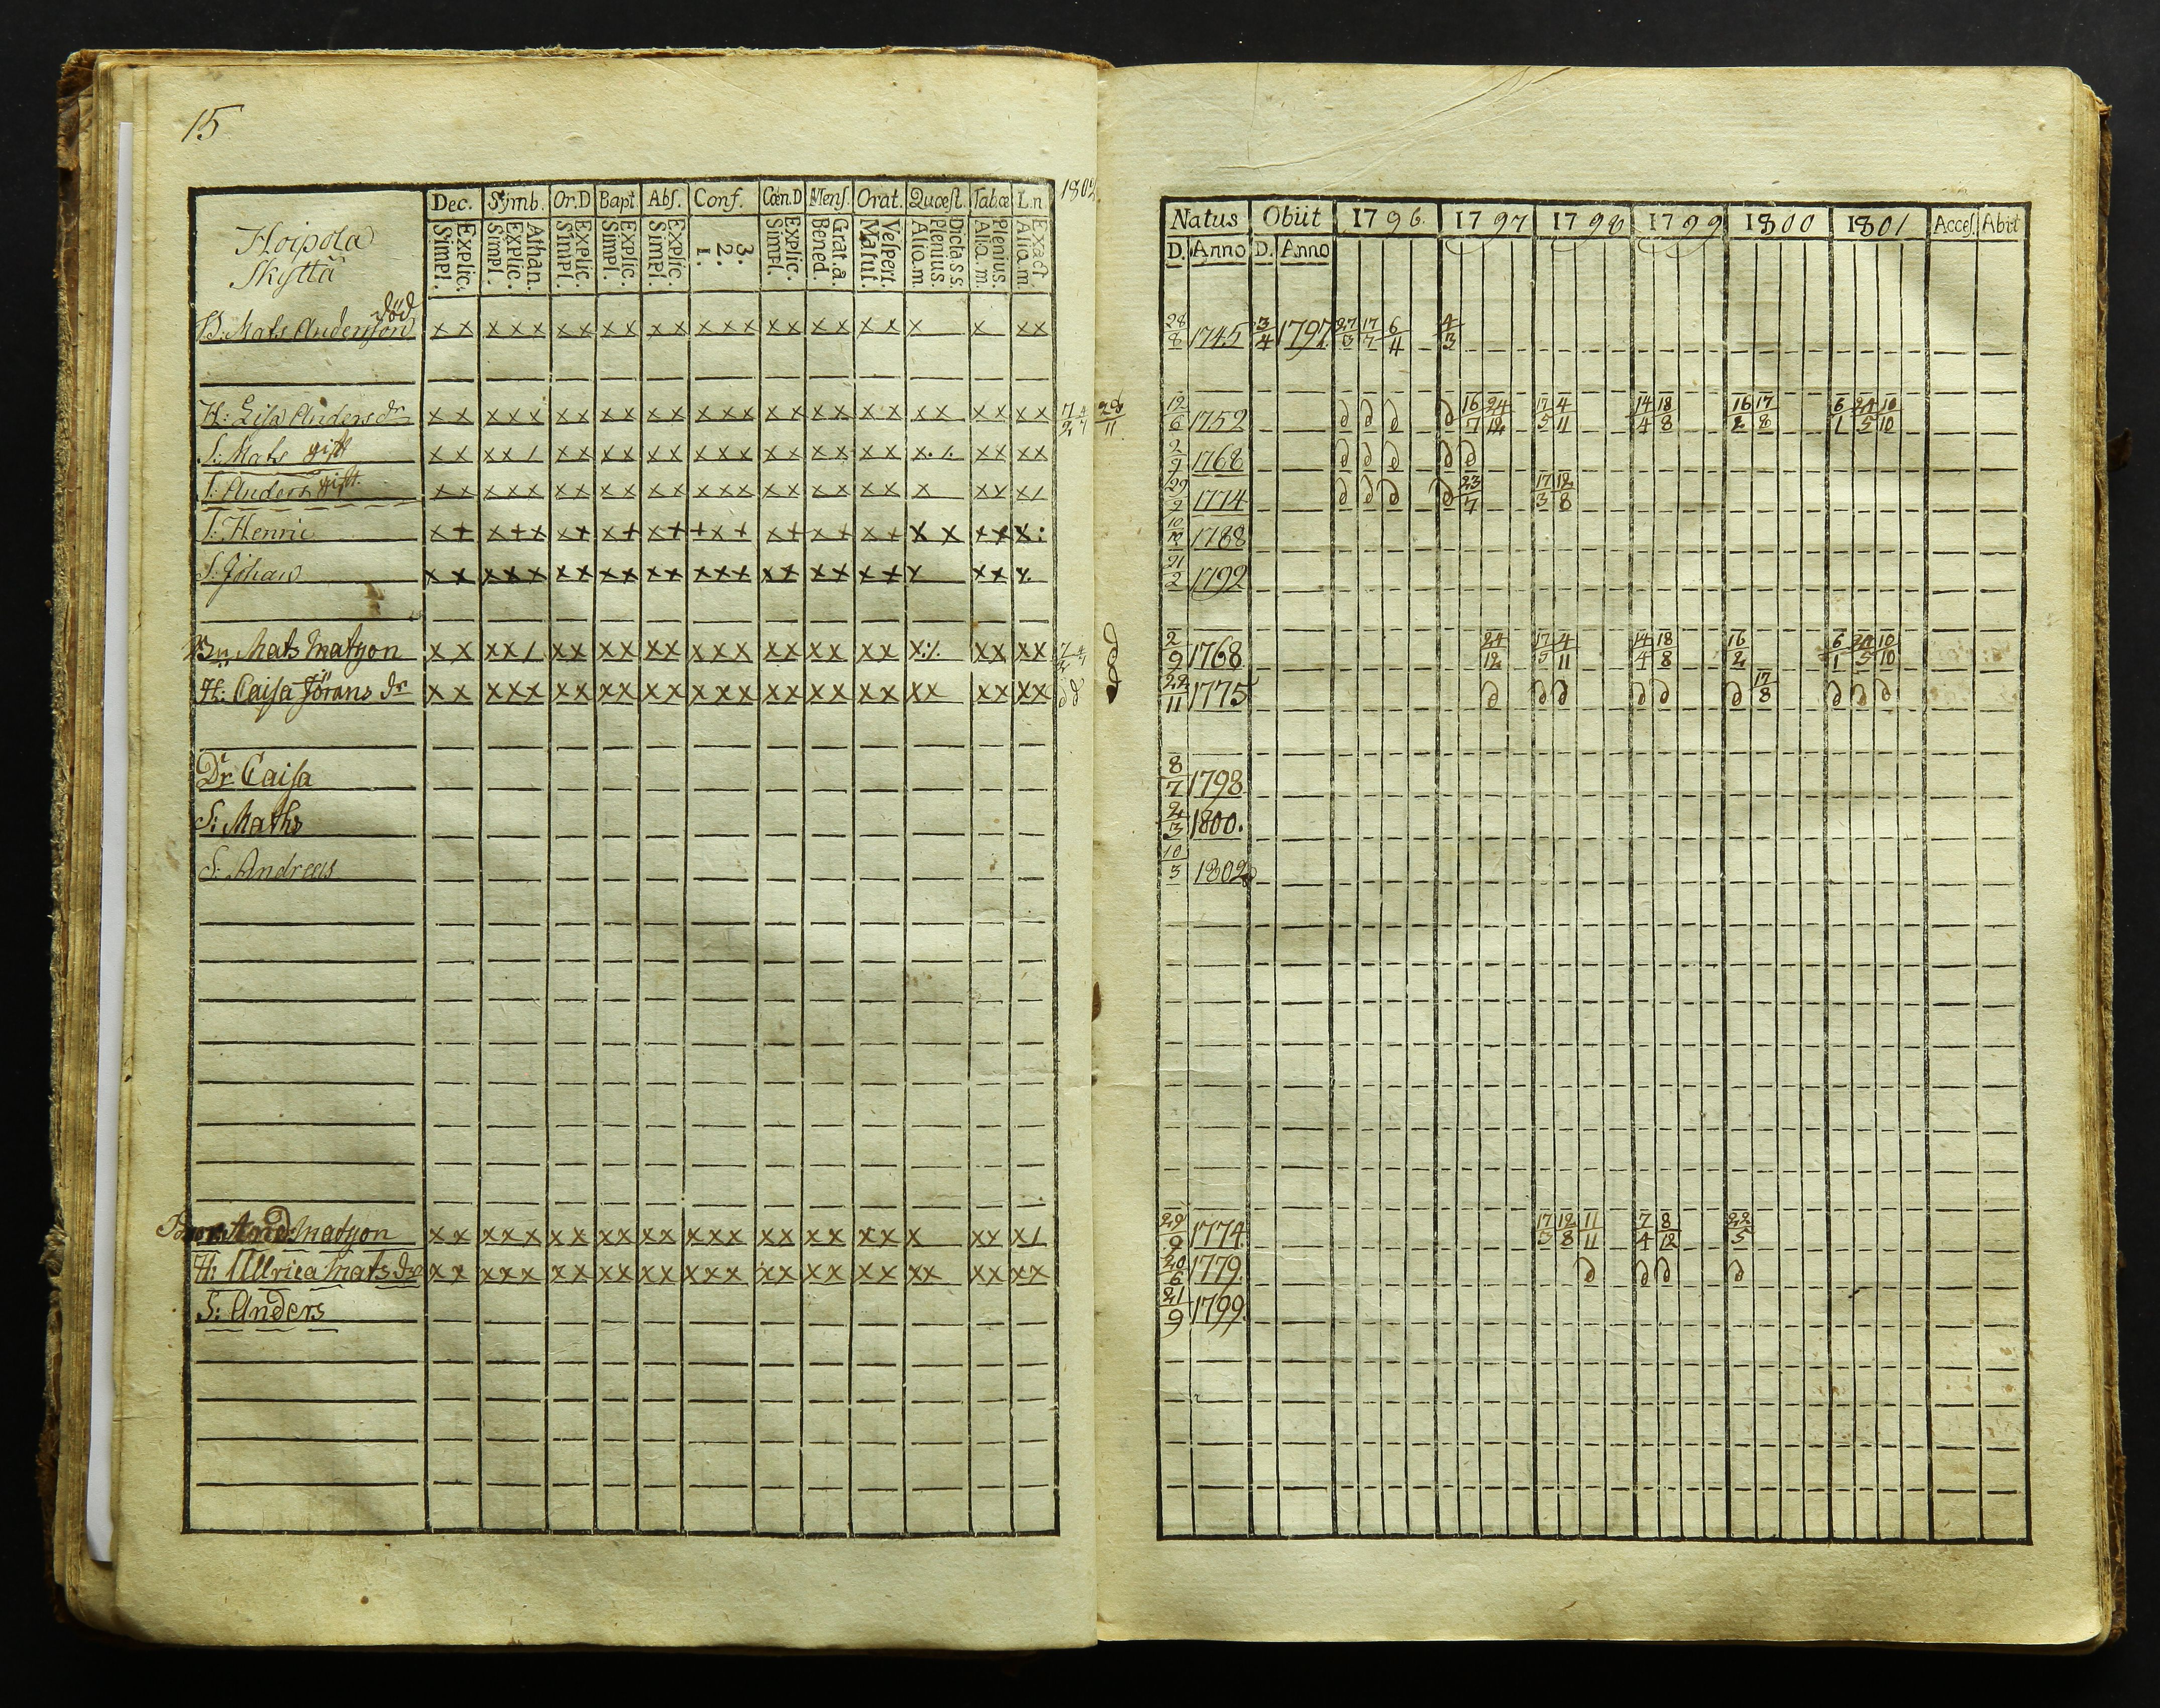 15
1802
Dec. Symb. Or.D Bapt. Abs. Conf. Cœn.D Mens. Orat. Quæst. Tabæ L.n
Hoipola
Skyttä
Explic. Simpl.
Athan. Explic. Simpl.
Explic. Simpl.
Explic. Simpl.
Explic. Simpl.
3. 2. 1.
Explic. Simpl.
Grat.a. Bened.
Vespert. Matut.
Dicta s s. Plenius. Aliq.m.
Plenius. Aliq.m.
Exact. Aliq.m.
död
B: Mats Andersson x x x x x x x x x x x x x x x x x x x x x x x x
H: Lisa Anders dr x x x x x x x x x x x x x x x x x x x x x x x x 7/2 4/7 28/11
S: Mats gift x x x x / x x x x x x x x x x x x x x x x x. /. x x x x
S: Anders gift x x x x x x x x x x x x x x x x x x x x x x x x x /
S: Henric x + x + x x + x + x + + x + x + x + x + x x x x x :
S: Johan x x x x x x x x x x x x x x x x x x x x x x x x x
Bn Mats Matsson x x x x / x x x x x x x x x x x x x x x x x ·/. x x x x
H: Caisa Jörans dr x x x x x x x x x x x x x x x x x x x x x x x x x x x
Dr Caisa
S: Maths
S: Andreas
And: Matsson x x x x x x x x x x x x x x x x x x x x x x x x /
H: Ullrica Mats dr x x x x x x x x x x x x x x x x x x x x x x x x x x x
S: Anders
Natus Obiit 1796. 1797 1798 1799 1800 1801 Acces. Abiit
D. Anno D. Anno
28/8 1745 3/4 1797 27/3 17/7 6/4 4/3
12/6 1752 d d d d 16/7 24/12 17/5 4/11 14/4 18/8 16/2 17/8 6/1 24/5 10/10
2/9 1768 d d d d d
29/9 1774 d d d d 23/7 17/3 12/8
1788
21/2 1792
2/9 1768 24/12 17/5 4/11 14/4 18/8 16/2 6/1 24/5 10/10
22/11 1775 d d d d d d 17/8 d d d
8/7 1798
2/3 1800.
10/3 1802
29/9 1774 17/3 12/8 11/11 7/4 8/12 22/5
20/6 1779 d d d d
21/9 1799.